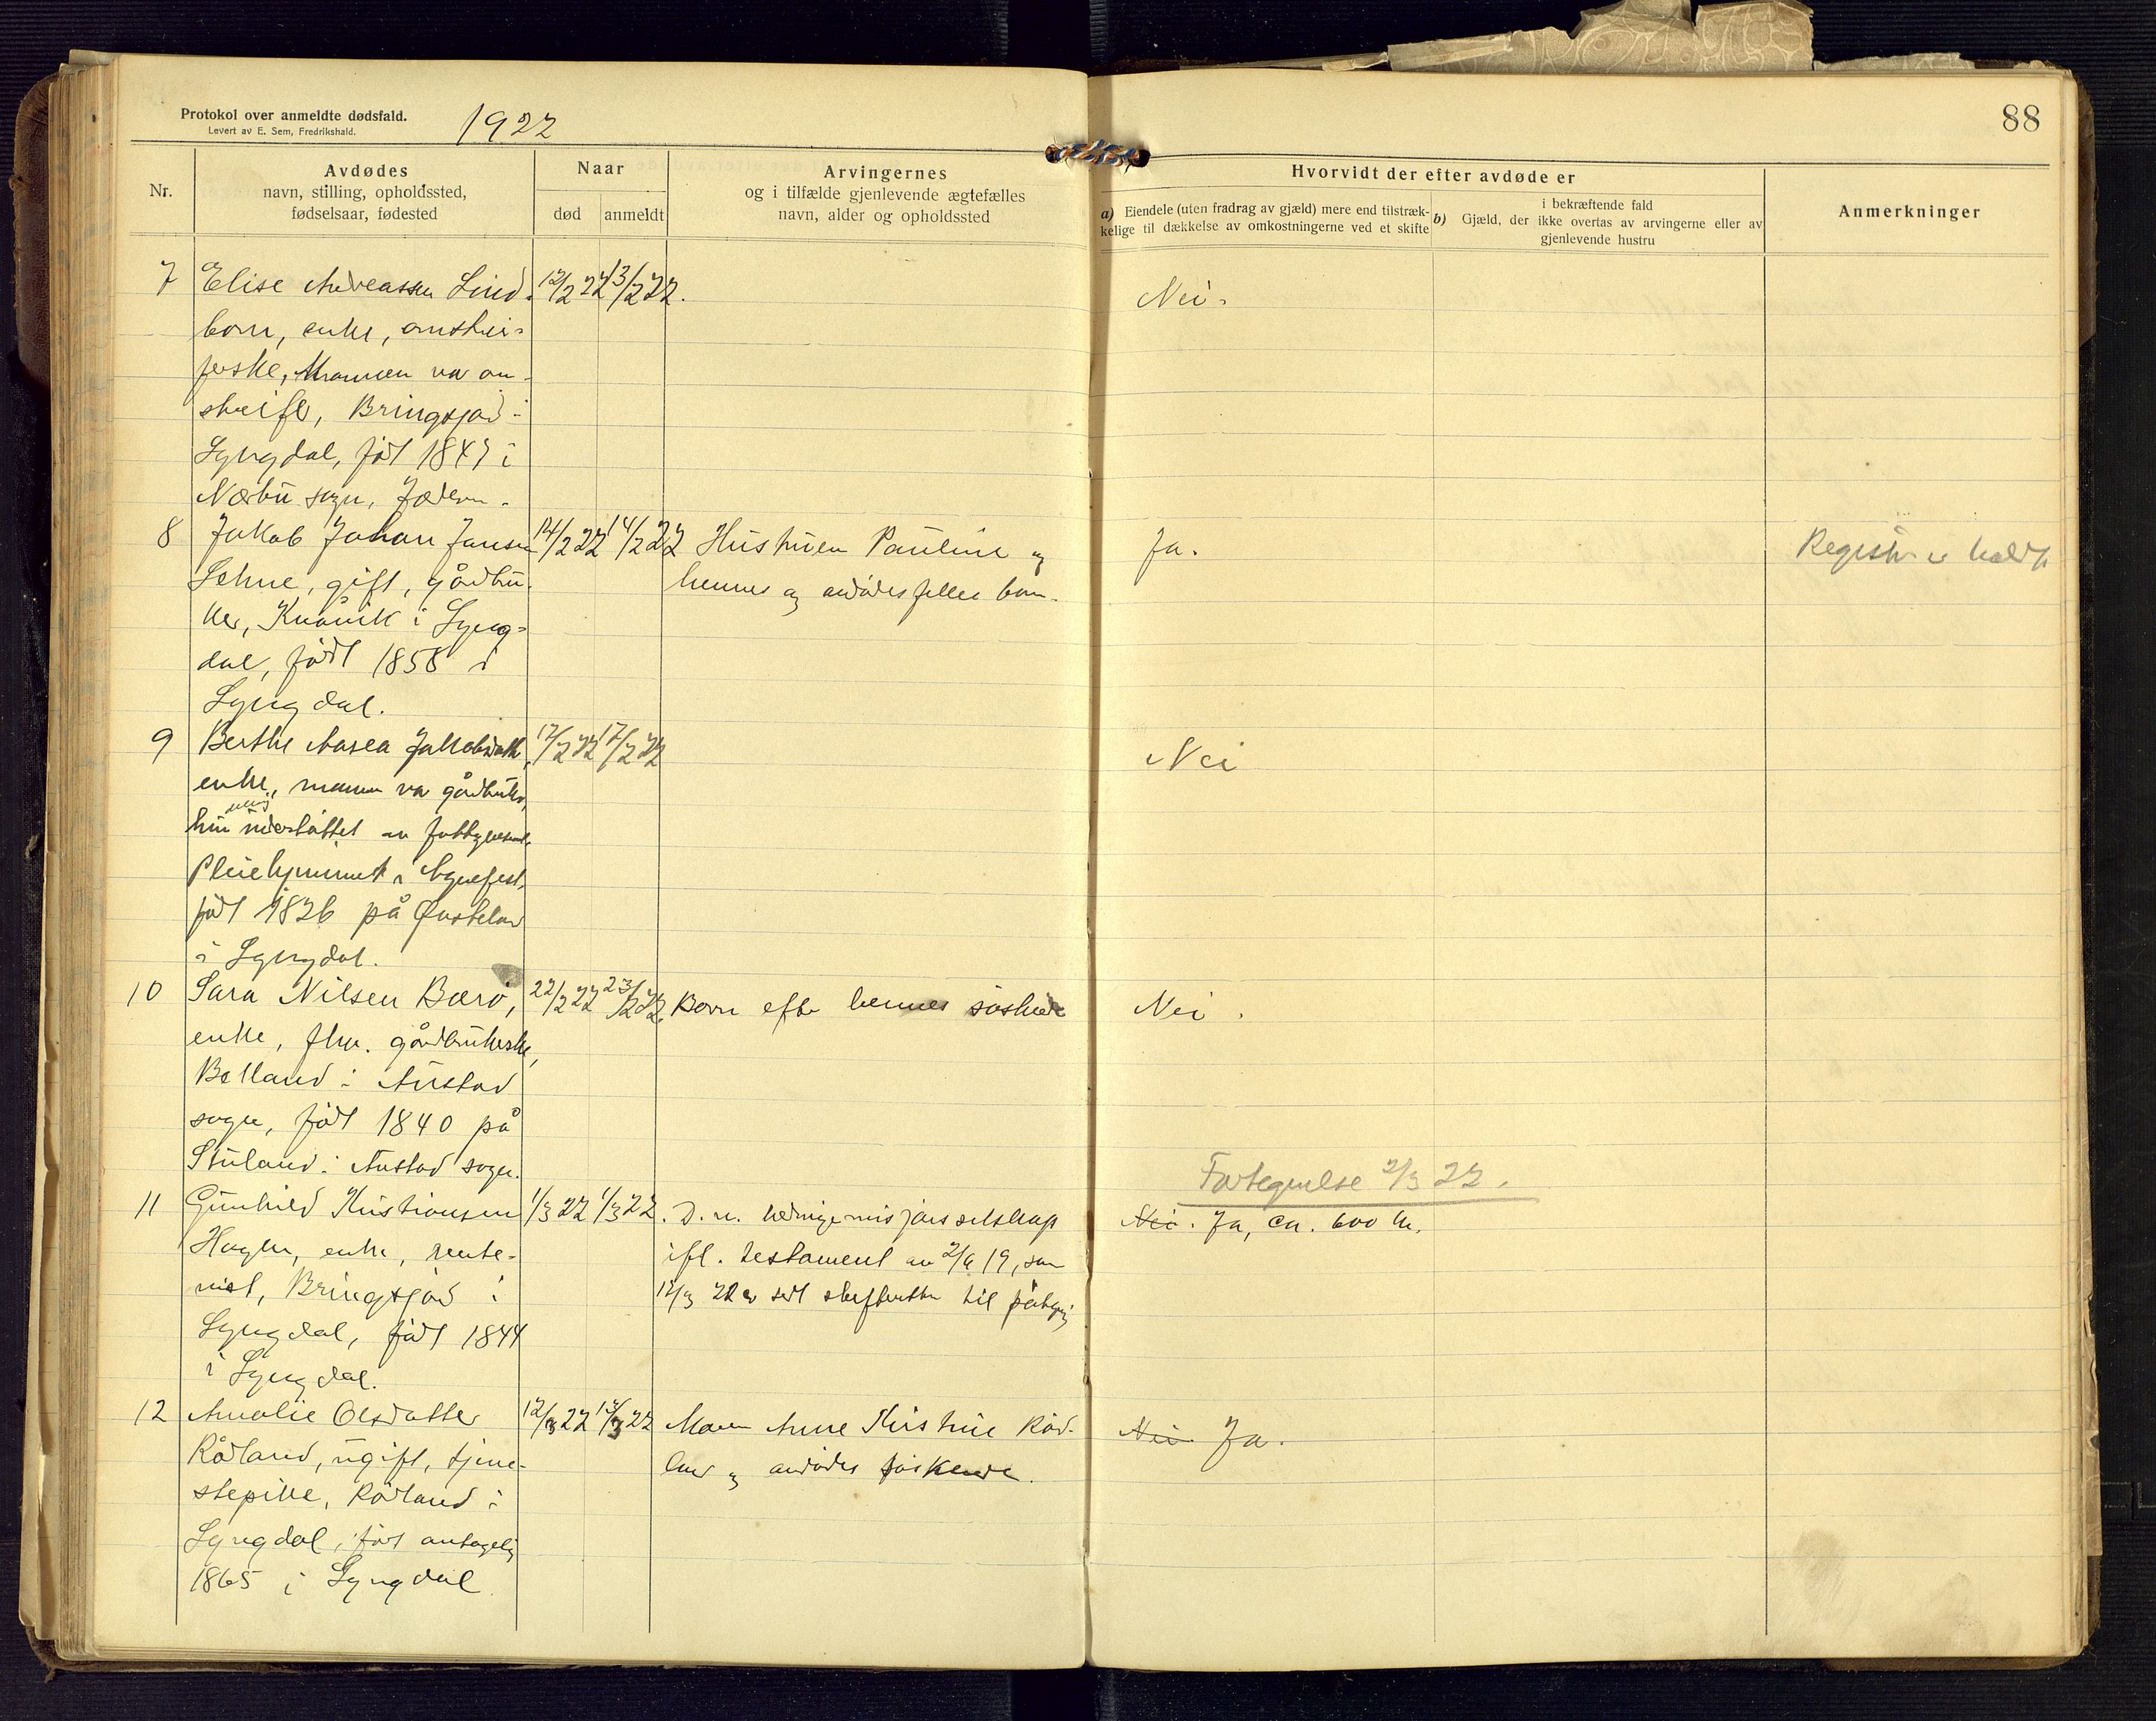 Protokol over anmeldte dødsfald.
Levert av E. Sem, Fredrikshald.
1922
88
Nr.
Avdødes
navn, stilling, opholdssted,
fødselsaar, fødested
Naar
død
anmeldt
Arvingernes
og i tilfælde gjenlevende ægtefælles
navn, alder og opholdssted
Hvorvidt der efter avdøde er
a) Eiendele (uten fradrag av gjæld) mere end tilstræk-
kelige til dækkelse av omkostningerne ved et skifte
b) Gjæld, der
i bekræftende fald
ikke overtas av arvingerne eller av
gjenlevende hustru
Anmerkninger
7 Elise Andreassen Lind- 12/2 22 13/2 22. Nei.
born, enke,
Mannen var
Bringsjord
Lyngdal, født 1847 i
Nærbü sogn, Jæderen.
8 Jakob Johan Jansen 14/2 22 14/2 22 Hustruen Pauline og Ja. Registr. er holdt
Lehne, gift, gårdbrü- hennes og avdødes felles barn.
ker, Kvåvik i Lyng-
dal, født 1858 i
Lyngdal.
9 Berthe Aasea Jakobsdatt. 17/2 22 17/2 22 Nei
enke, mannen var gårdbrüker,
hün understøttet av fattigvesenet,
Pleiehjemmet i Agnefest,
født 1826 på
i Lyngdal.
10 Sara Nilsen Bærø, 22/2 22 23/2 22. Barn efter hennes søskende Nei.
enke, fhv. gårdbrükerske,
i Austad
sogn, født 1840 på
Stüland i Austad sogn.
Fortegnelse 2/3 22.
11 Gunhild Kristiansen 1/3 22 1/3 22. D. n. hedningemisjonsselskap Nei. Ja, ca. 600 kr.
enke, rente- ifl. testament av 19, som
nist, Bringsjord i 22 er sendt skifteretten til påtegn.
Lyngdal, født 1844
i Lyngdal.
12 Amalie Olsdatter 12/3 22 13/3 22 Moren Anne Kristine Röd- Nei Ja.
Rödland, ügift, tjene- land og avdødes søskende.
stepike, Rödland i
Lyngdal, født antagelig
1865 i Lyngdal